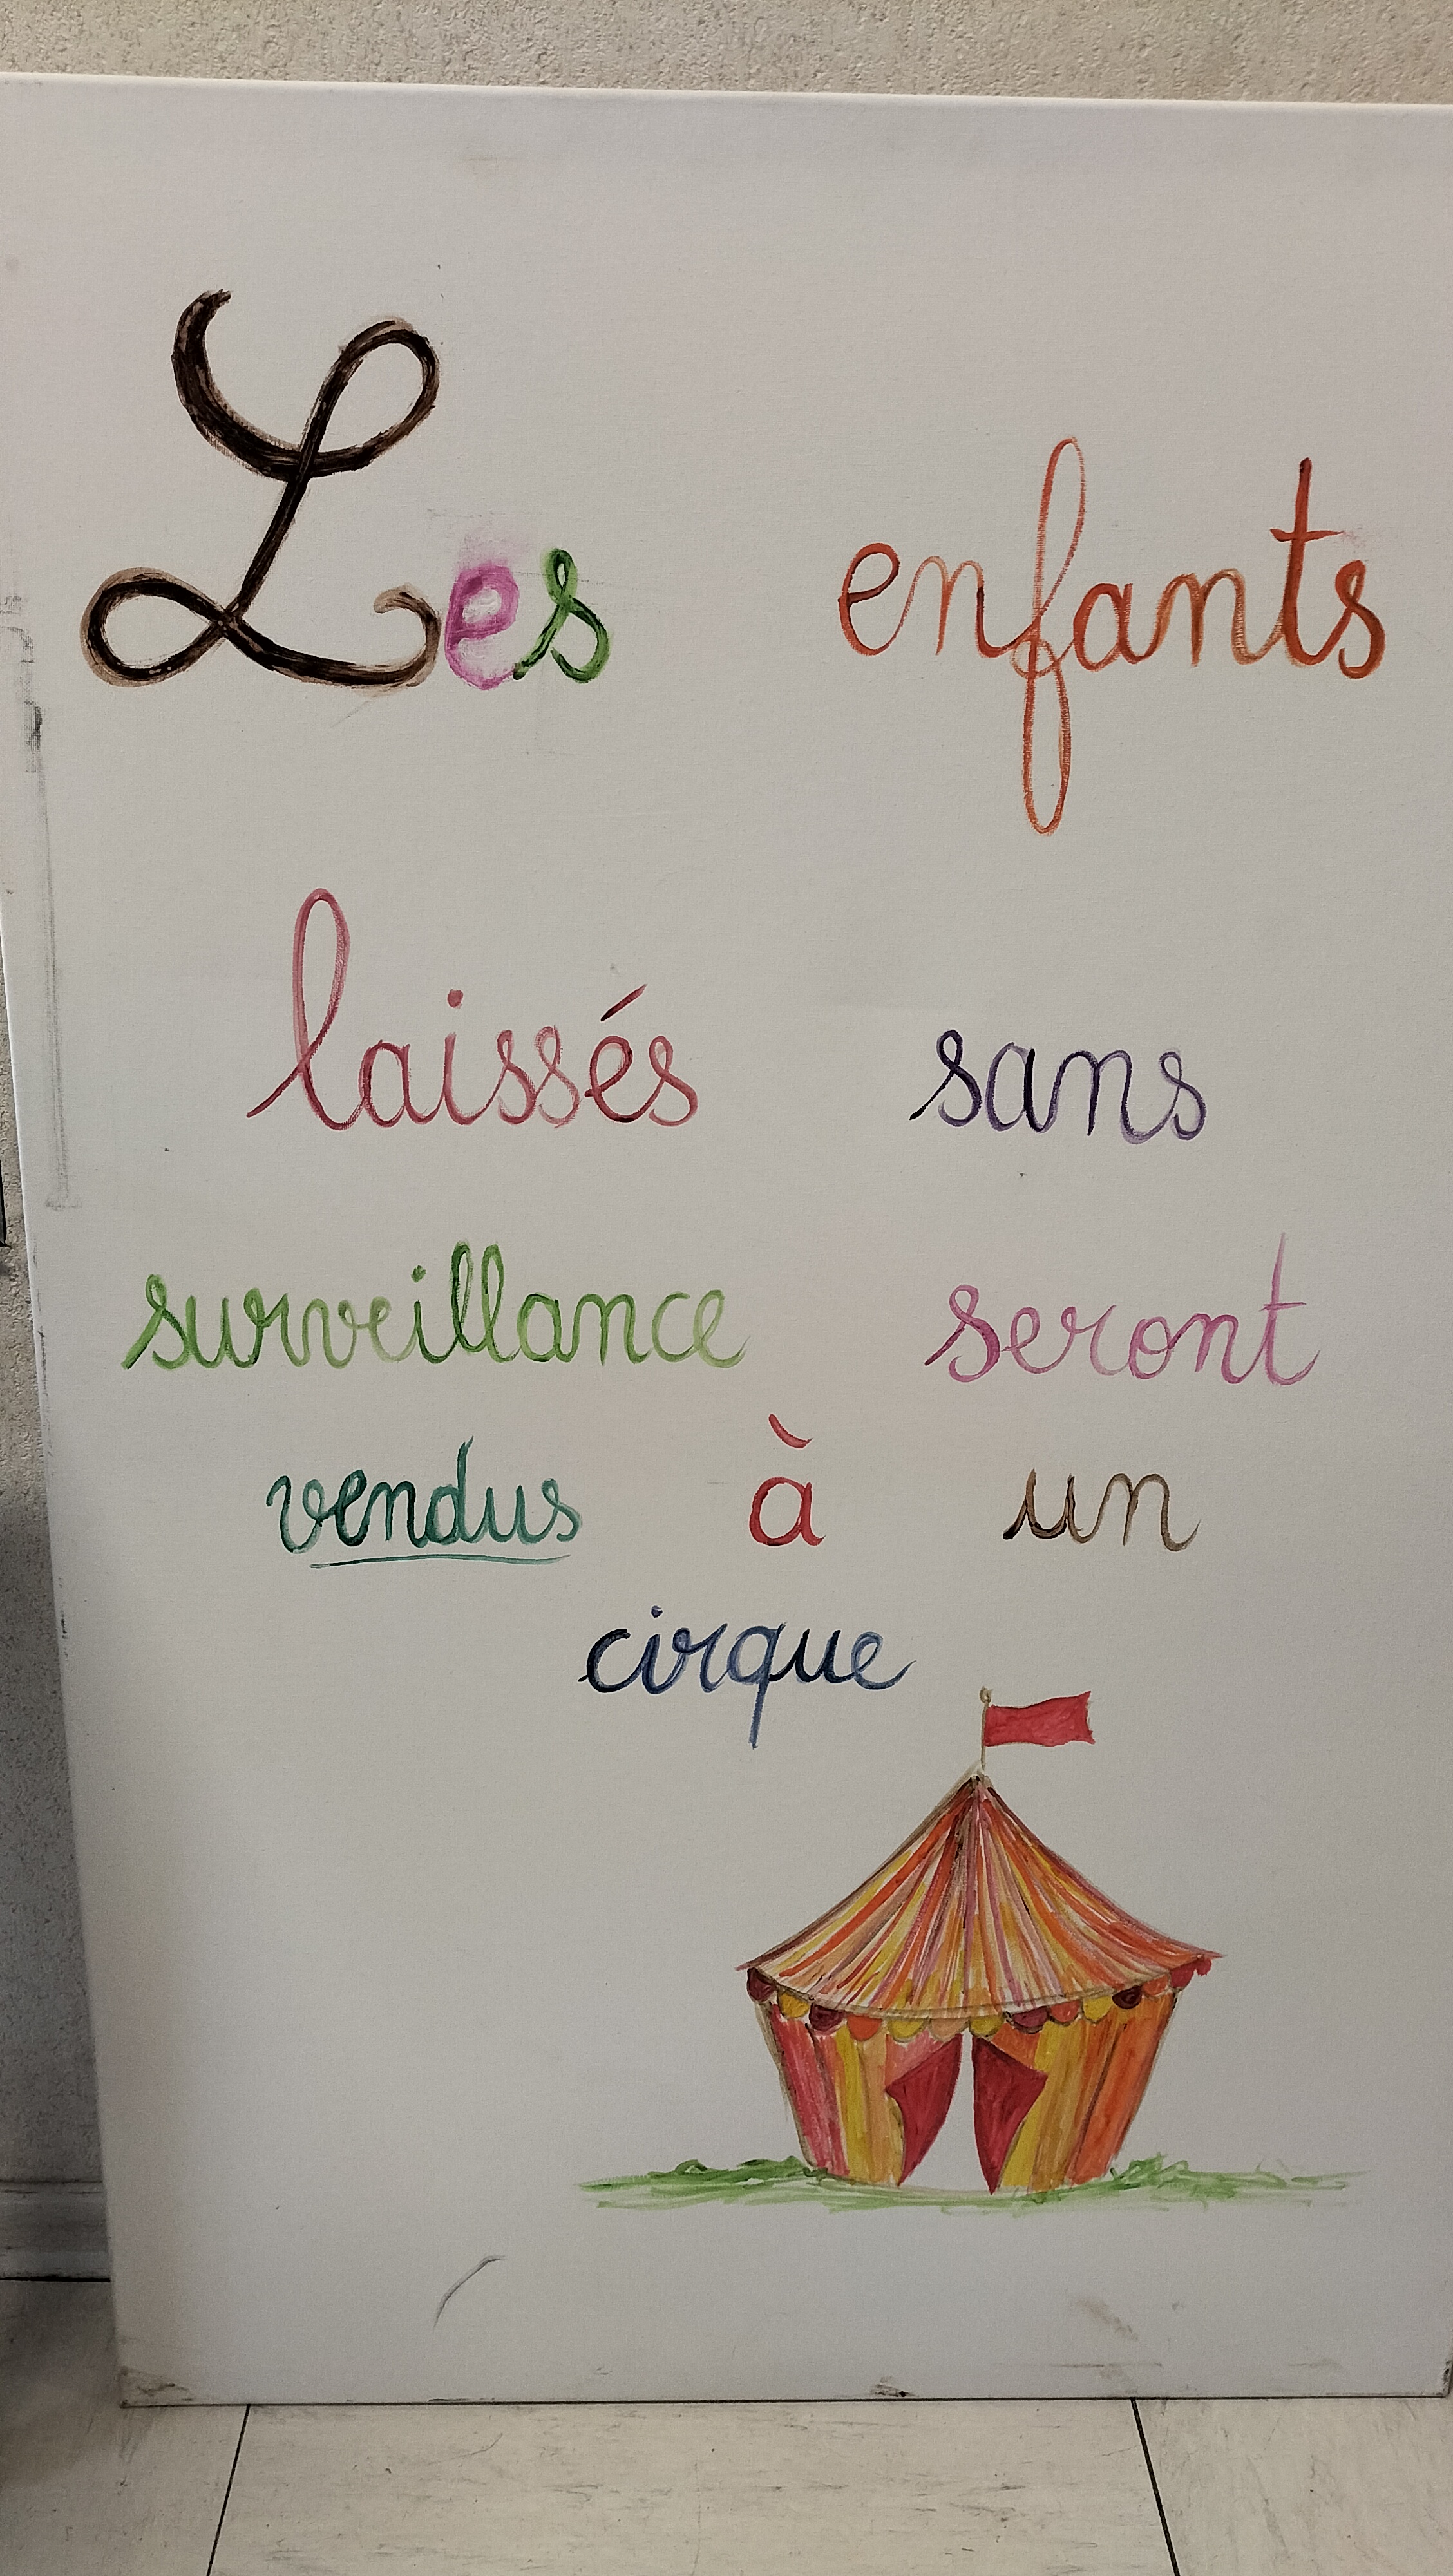 Les enfants
laissés sans
surveillance seront
vendus à un
cirque